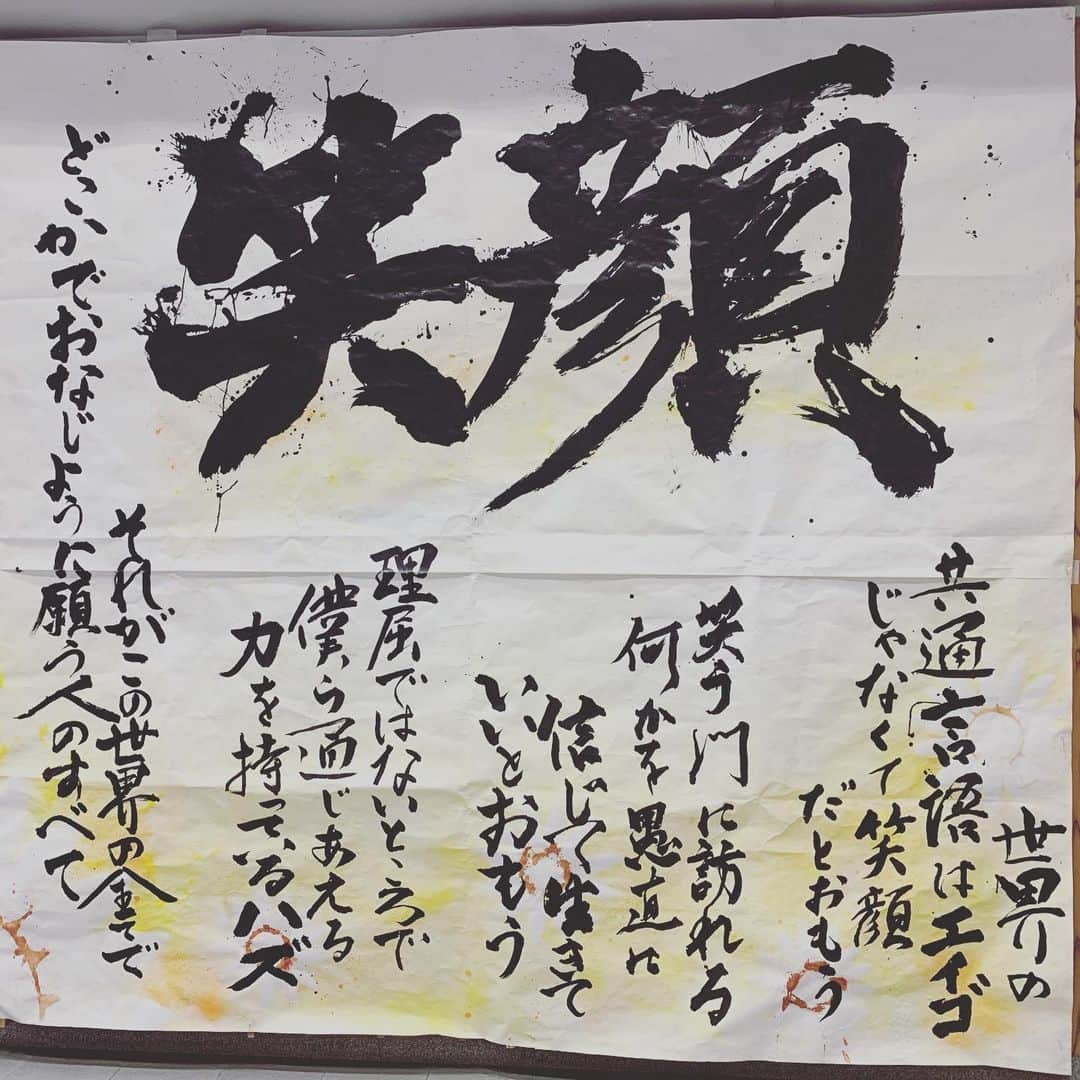 笑顔
世界の
共通言語はエイゴ
じゃなくて笑顔
だとおもう
笑う門に訪れる
何かを愚直に
信じて生きて
いいとおもう
理屈ではないところで
僕ら通じあえる
力を持っているハズ
それがこの世界の全てで
どこかでおなじように願う人のすべて